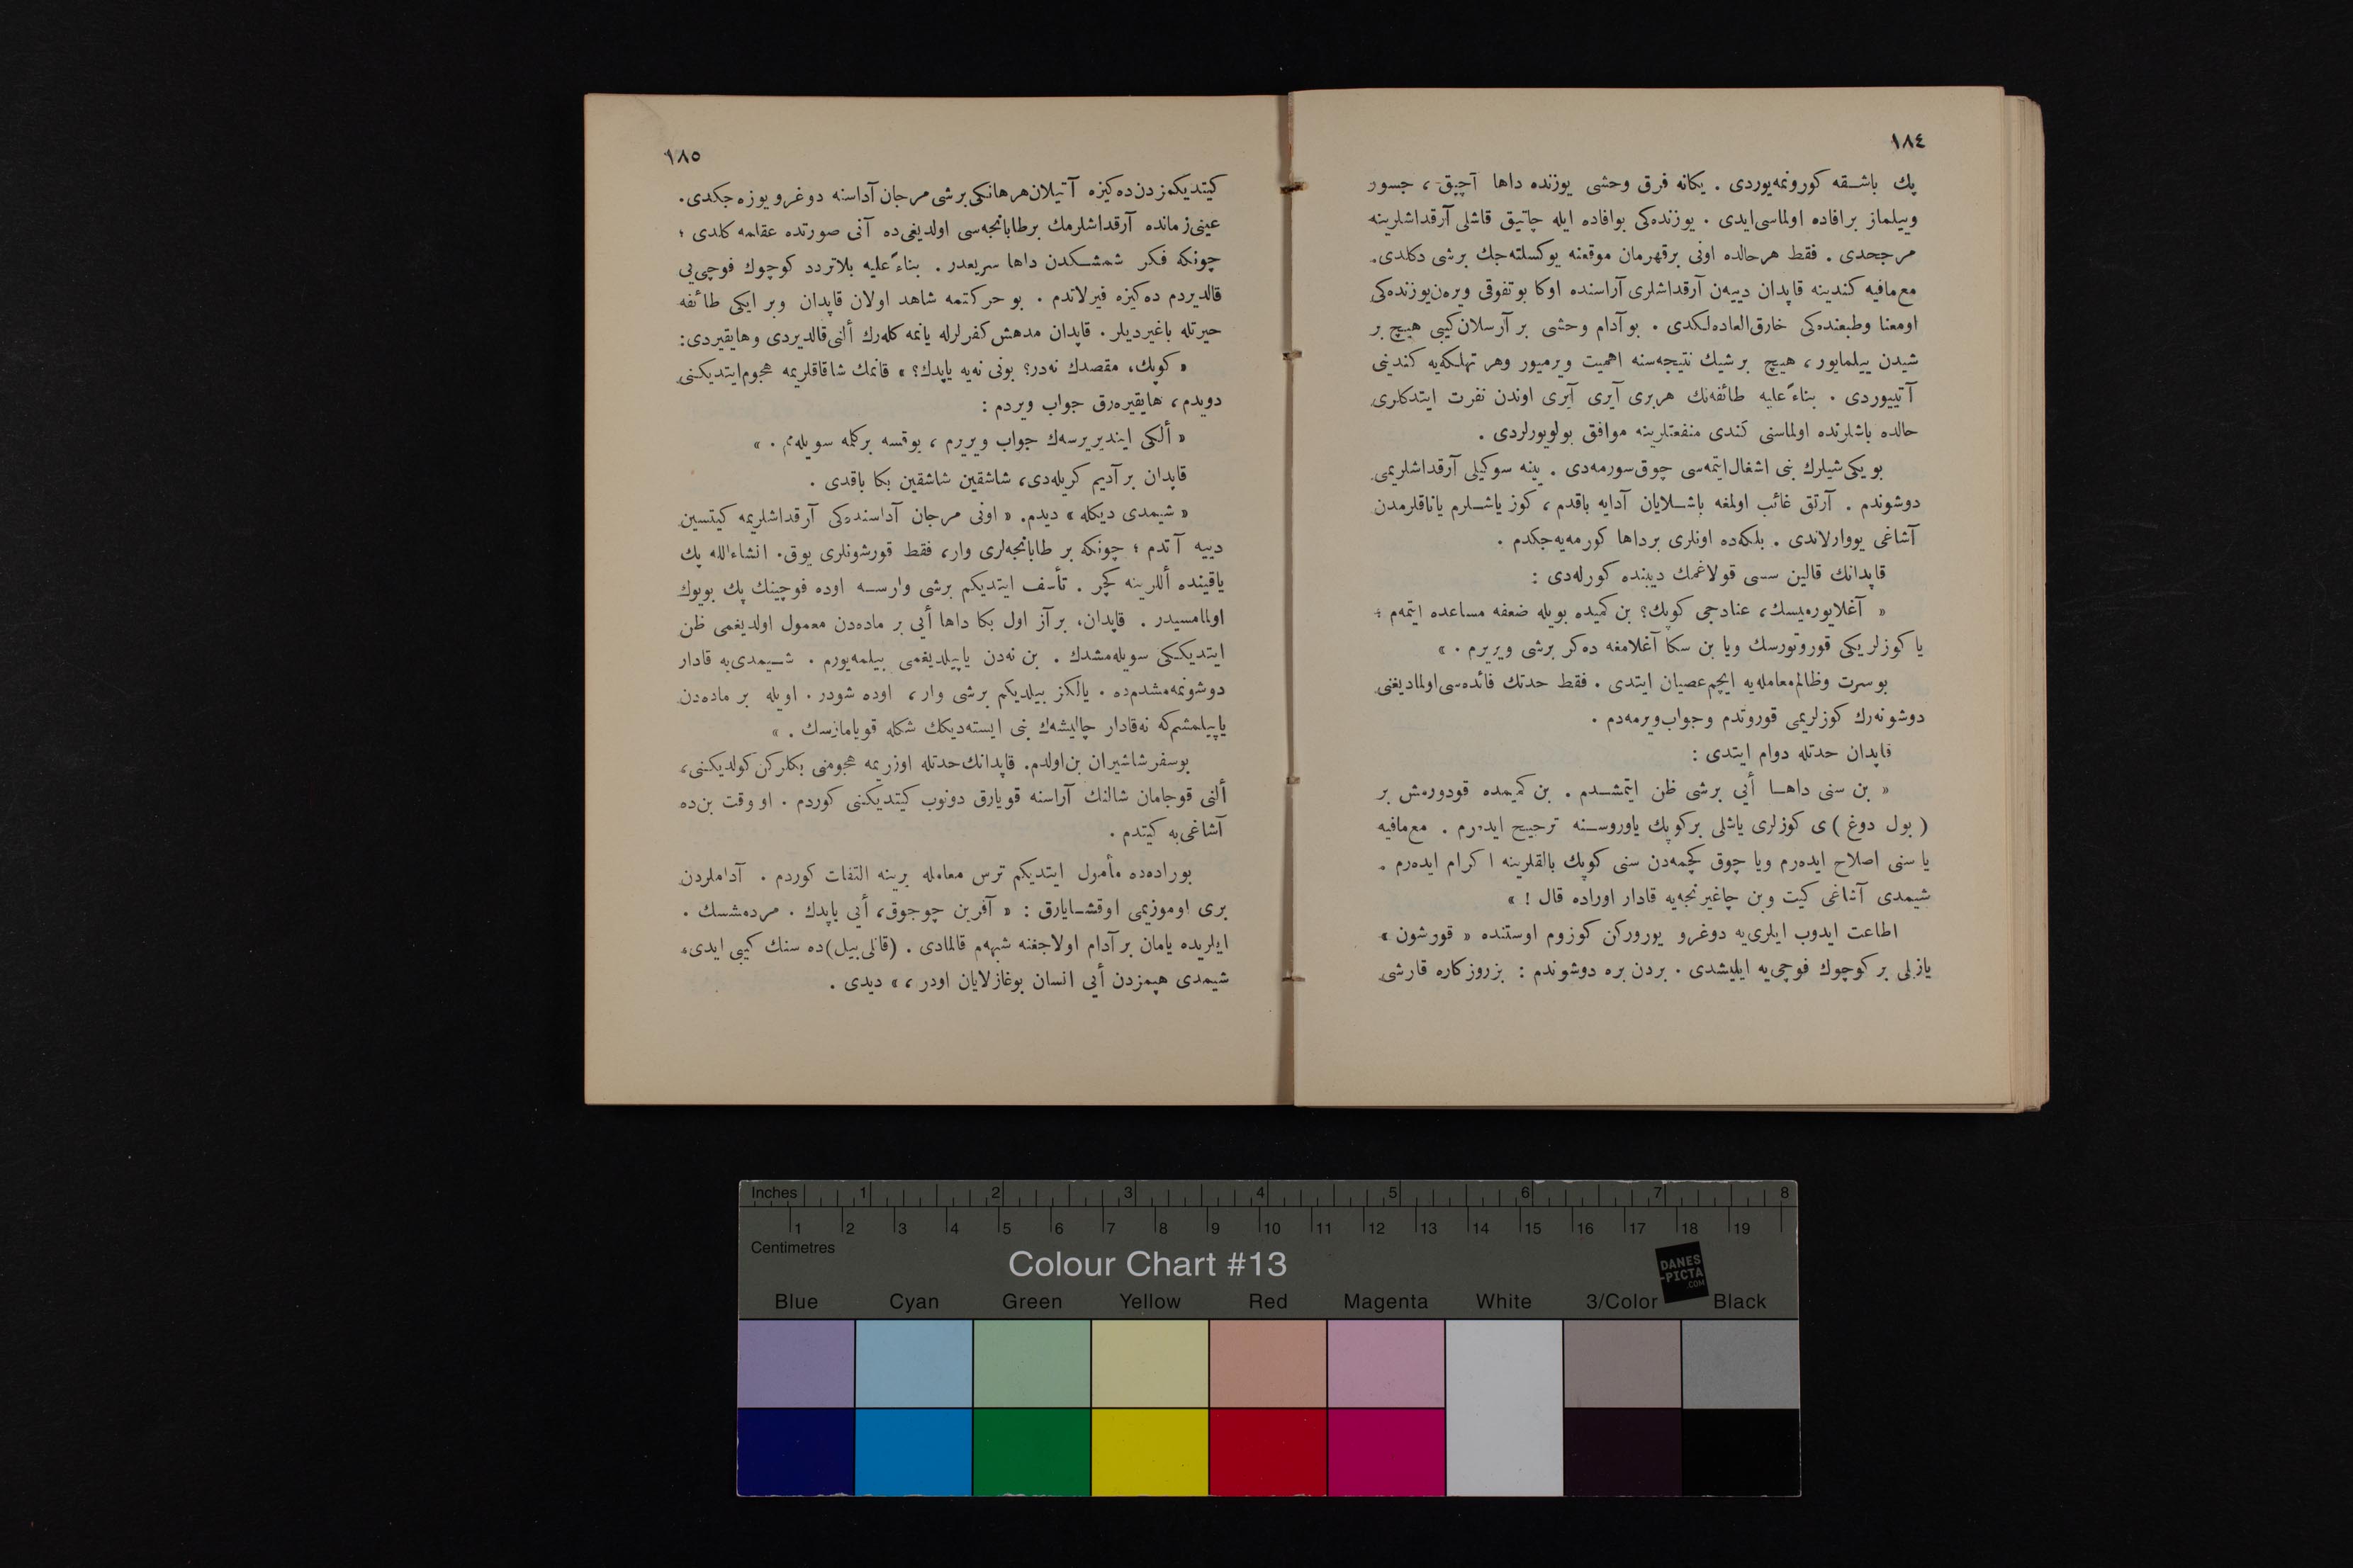 ١٨٤
پك باشقه كورونمه‌يوردی . يكانه فرق وحشی يوزنده داها آچيق ، جسور
وييلماز برافاده اولماسی‌ايدی . يوزنده‌كی بوافاده ايله چاتيق قاشلی آرقداشلرينه
مرجحدی . فقط هرحالده اونی برقهرمان موقعنه يوكسلته‌جك برشی دكلدی.
مع‌مافيه كندينه قاپدان دييه‌ن آرقداشلری آراسنده اوكا بوتفوقی ويره‌ن‌يوزنده‌كی
اومعنا وطبعنده‌كی خارق‌العاده‌لكدی . بوآدام وحشی بر آرسلان‌كيبی هيچ بر
شيدن ييلمايور ، هيچ برشيك نتيجه‌سنه اهميت ويرميور وهر تهلكه‌يه كندينی
آتييوردی . بناءً‌عليه طائفه‌نك هربری آيری آيری اوندن نفرت ايتدكلری
حالده باشلرنده اولماسنی كندی منفعتلرينه موافق بولويورلردی .
بو يكی شيلرك بنی اشغال‌ايتمه‌سی چوق‌سورمه‌دی . ينه سوكيلی آرقداشلريمی
دوشوندم . آرتق غائب اولمغه باشلايان آدايه باقدم ، كوز ياشلرم ياناقلرمدن
آشاغی يووارلاندی . بلكه‌ده اونلری برداها كورمه‌يه‌جكدم .
قاپدانك قالين سسی قولاغمك ديبنده كورله‌دی :
« آغلايورميسك، عنادجی كوپك؟ بن كميده بويله ضعفه مساعده ايتمه‌م ؛
يا كوزلريكی قوروتورسك ويا بن سكا آغلامغه ده‌كر برشی ويريرم . »
بوسرت وظالم‌معامله‌يه ايچم‌عصيان ايتدی . فقط حدتك فائده‌سی‌اولماديغنی
دوشونه‌رك كوزلريمی قوروتدم وجواب‌ويرمه‌دم .
قاپدان حدتله دوام ايتدی :
« بن سنی داها أيی برشی ظن ايتمشدم . بن كميمده قودورمش بر
( بول دوغ ) ی كوزلری ياشلی بركوپك ياوروسنه ترجيح ايده‌رم . مع‌مافيه
يا سنی اصلاح ايده‌رم ويا چوق كچمه‌دن سنی كوپك بالقلرينه اكرام ايده‌رم .
شيمدی آشاغی كيت وبن چاغيرنجه‌يه قادار اوراده قال ! »
اطاعت ايدوب ايلری‌يه دوغرو يوروركن كوزوم اوستنده « قورشون »
يازيلی بر كوچوك فوچی‌يه ايليشدی . بردن بره دوشوندم : بزروزكاره قارشی
١٨٥
كيتديكمزدن ده‌كيزه آتيلان‌هرهانكی‌برشی مرجان آداسنه دوغرو يوزه‌جكدی.
عينی‌زمانده آرقداشلرمك برطابانجه‌سی اولديغی‌ده آنی صورتده عقلمه كلدی ؛
چونكه فكر شمشكدن داها سريعدر . بناءً‌عليه بلاتردد كوچوك فوچی‌يی
قالديردم ده‌كيزه فيرلاتدم . بو حركتمه شاهد اولان قاپدان وبر ايكی طائفه
حيرتله باغيرديلر . قاپدان مدهش كفرلرله يانمه كله‌رك ألنی‌قالديردی وهايقيردی:
« كوپك، مقصدك نه‌در؟ بونی نه‌يه ياپدك؟ » قانمك شاقاقلريمه هجوم‌ايتديكنی
دويدم، هايقيره‌رق جواب ويردم :
« ألكی اينديريرسه‌ك جواب ويريرم ، يوقسه بركله سويله‌مم . »
قاپدان بر آديم كريله‌دی، شاشقين شاشقين بكا باقدی .
« شيمدی ديكله » ديدم. « اونی مرجان آداسنده‌كی آرقداشلريمه كيتسين
دييه آتدم ؛ چونكه بر طابانجه‌لری وار، فقط قورشونلری يوق. انشاءالله پك
ياقينده أللرينه كچر . تأسف ايتديكم برشی وارسه اوده فوچينك پك بويوك
اولمامسيدر . قاپدان، بر آز اول بكا داها أيی بر ماده‌دن معمول اولديغمی ظن
ايتديككی سويله‌مشدك . بن نه‌دن ياپيلديغمی بيلمه‌يورم . شيمدی‌يه قادار
دوشونمه‌مشدم‌ده . يالكز بيلديكم برشی وار، اوده شودر . اويله بر ماده‌دن
ياپيلمشم‌كه نه‌قادار چاليشه‌ك بنی ايسته‌ديكك شكله قويامازسك . »
بوسفر شاشيران بن‌اولدم. قاپدانك‌حدتله اوزريمه هجومنی بكلركن‌كولديكنی،
ألنی قوجامان شالنك آراسنه قويارق دونوب كيتديكنی كوردم . او وقت بن‌ده
آشاغی‌يه كيتدم .
بوراده‌ده مأمول ايتديكم ترس معامله يرينه التفات كوردم . آداملردن
بری اوموزيمی اوقشايارق : « آفرين چوجوق، أيی ياپدك . مردمشسك .
ايلريده يامان بر آدام اولاجغنه شبهه‌م قالمادی . (قانلی‌بيل)ده سنك كيبی ايدی،
شيمدی هپمزدن أيی انسان بوغازلايان اودر ، » ديدی .
Inches 1 2 3 4 5 6 7 8
1 2 3 4 5 6 7 8 9 10 11 12 13 14 15 16 17 18 19
Centimetres
Colour Chart #13
DANES
-PICTA
.COM
Blue Cyan Green Yellow Red Magenta White 3/Color Black